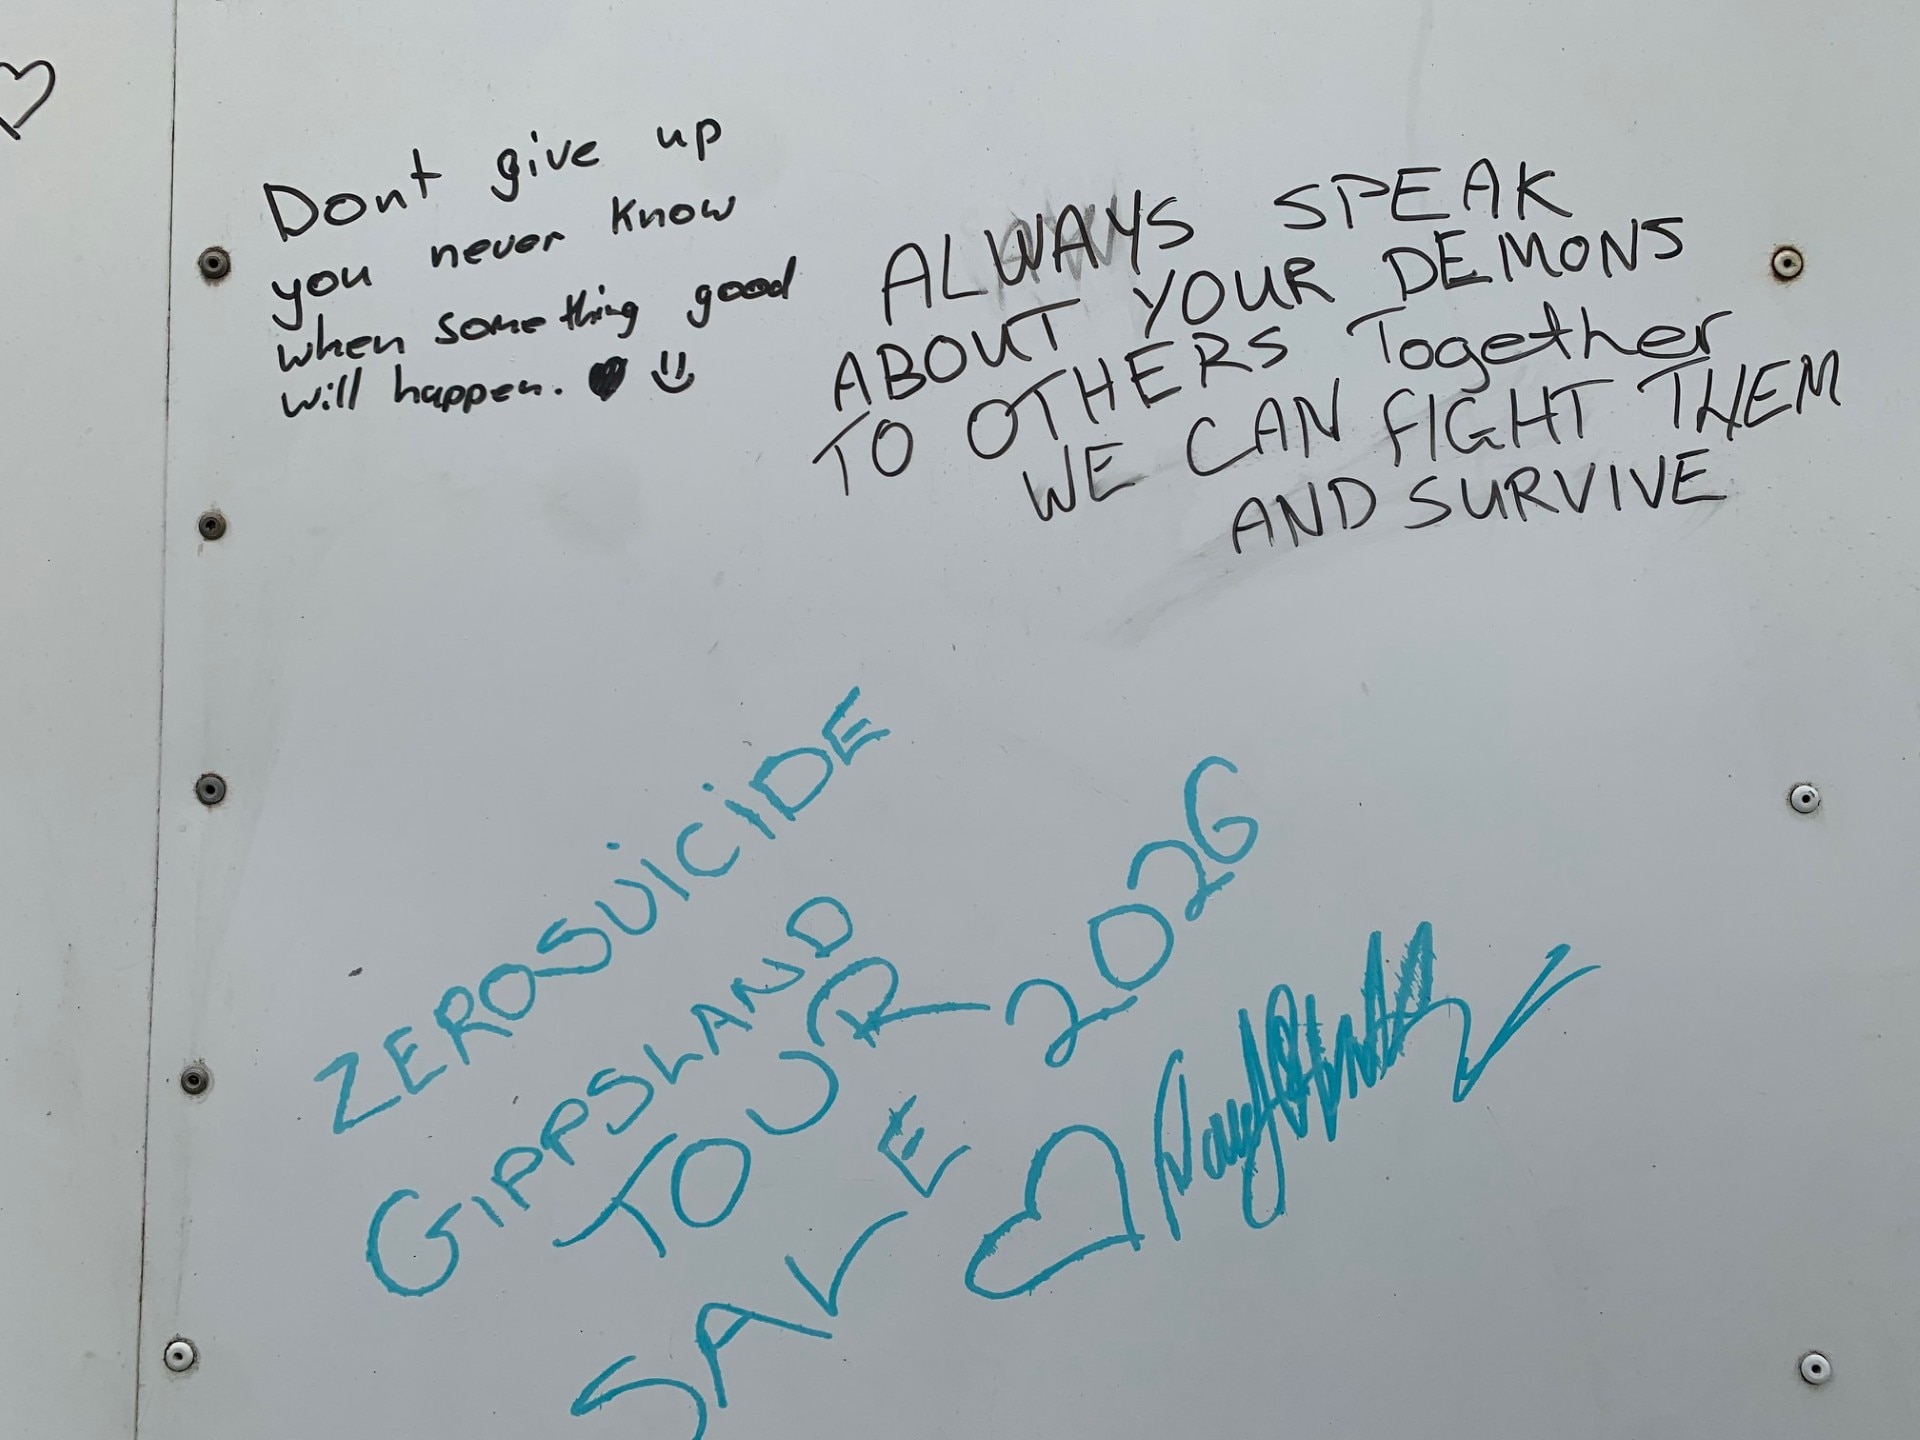 Dont give up
you never know
when something good
will happen.
ALWAYS SPEAK
ABOUT YOUR DEMONS
TO OTHERS Together
WE CAN FIGHT THEM
AND SURVIVE
ZEROSUiCiDE
GIPPSLAND
TOUR 2026
SAVE